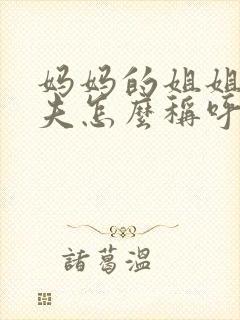 妈妈的姐姐
夫怎麽稱呼
諸葛溫